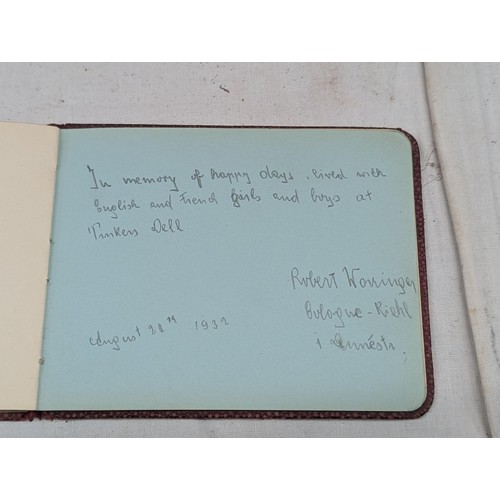 In memory of happy days, lived with
English and French girls and boys at
Tinkers Dell
Robert Worringer
Cologne-Riehl
August 28th 1932